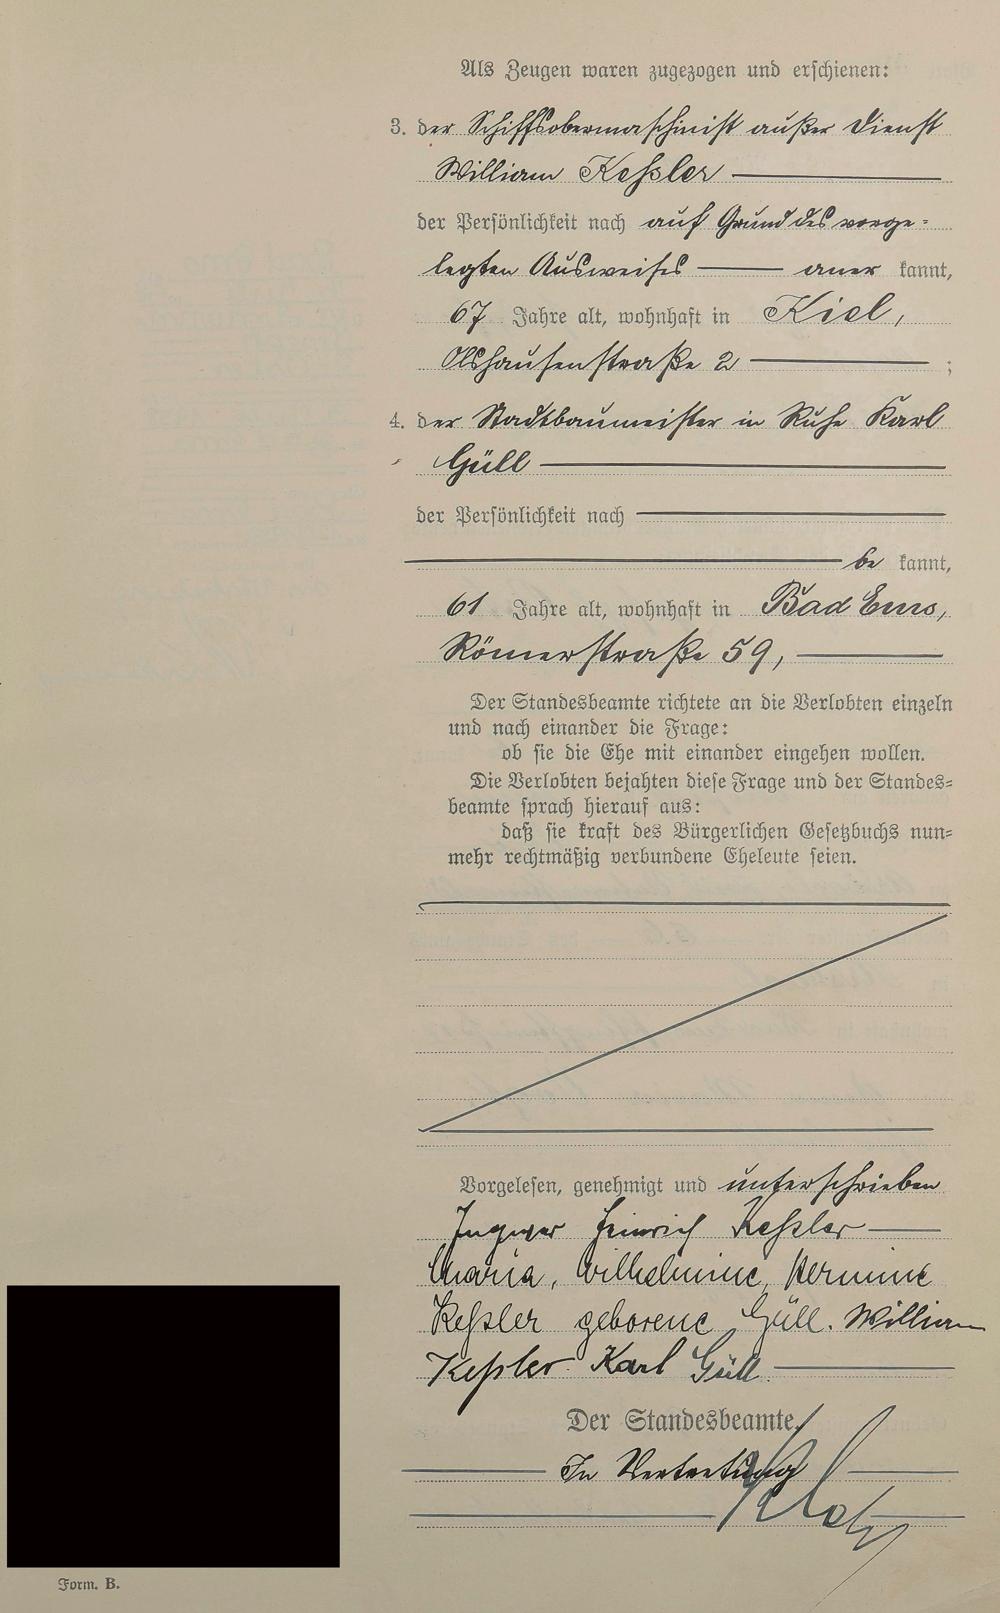 Als Zeugen waren zugezogen und erschienen:
3. der Schiffsobermaschinist außer Dienst
William Keßler
der Persönlichkeit nach auf Grund des vorge=
legten Ausweises aner kannt,
67 Jahre alt, wohnhaft in Kiel,
Olshausenstraße 2 ;
4. der Stadtbaumeister in Ruhe Karl
Güll
der Persönlichkeit nach
be kannt,
61 Jahre alt, wohnhaft in Bad Ems,
Römerstraße 59,
Der Standesbeamte richtete an die Verlobten einzeln
und nach einander die Frage:
ob sie die Ehe mit einander eingehen wollen.
Die Verlobten bejahten diese Frage und der Standes=
beamte sprach hierauf aus:
daß sie kraft des Bürgerlichen Gesetzbuchs nun=
mehr rechtmäßig verbundene Eheleute seien.
Vorgelesen, genehmigt und unterschrieben
Ingwer Heinrich Keßler
Maria, Wilhelmine, Hermine
Keßler geborene Güll. William
Keßler Karl Güll
Der Standesbeamte.
In Vertretung
Form. B.